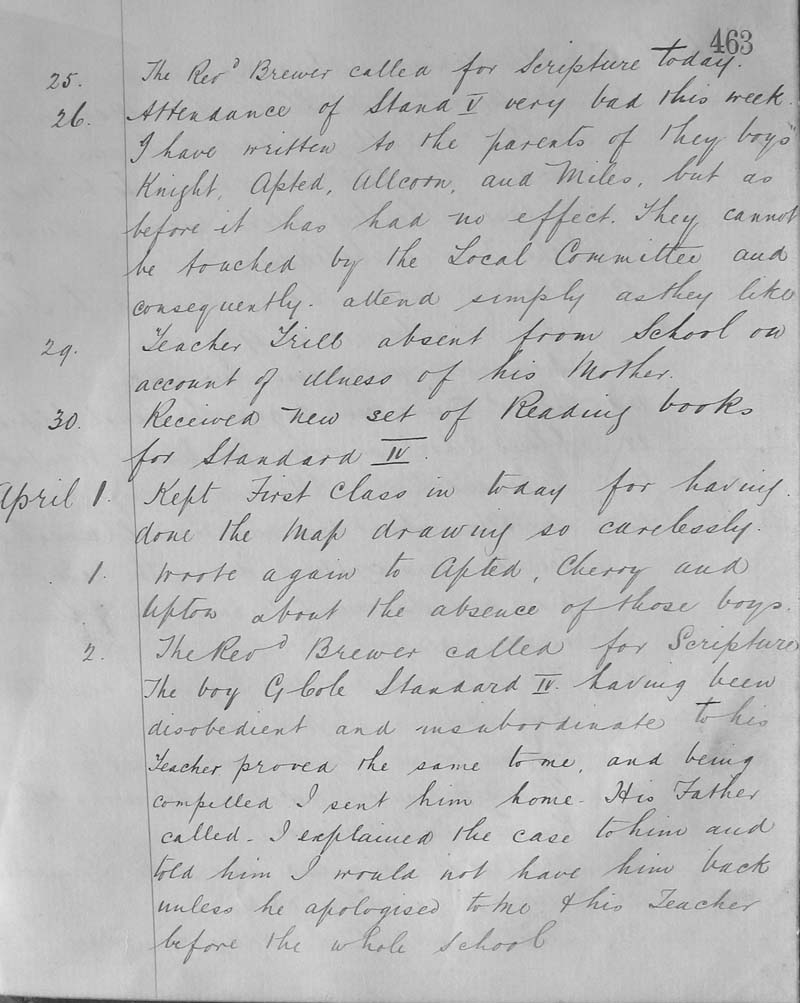 463
25. The Revd Brewer called for Scripture today.
26. Attendance of Stand V very bad this week.
I have written to the parents of they boys
Knight, Apted, Allcorn, and Miles, but as
before it has had no effect. They cannot
be touched by the Local Committee and
consequently. attend simply as they like
29. Teacher Trill absent from School on
account of illness of his Mother.
30. Received new set of Reading books
for Standard IV.
April 1. Kept First Class in today for having
done the Map drawing so carelessly.
1. Wrote again to Apted, Cherry and
Upton about the absence of those boys.
2. The Revd Brewer called for Scripture
The boy G Cole Standard IV. having been
disobedient and insubordinate to his
Teacher proved the same to me, and being
compelled I sent him home. His Father
called. I explained the case to him and
told him I would not have him back
unless he apologised to me & his Teacher
before the whole School